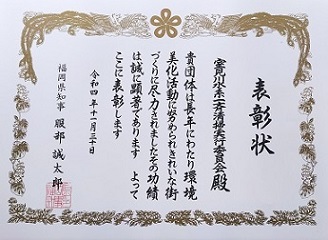 表彰状
室見川水系一斉清掃実行委員会殿
貴団体は長年にわたり環境
美化活動に努められきれいな街
づくりに尽力されましたその功績
は誠に顕著であります　よって
ここに表彰します
令和四年十一月三十日
福岡県知事　服部誠太郎